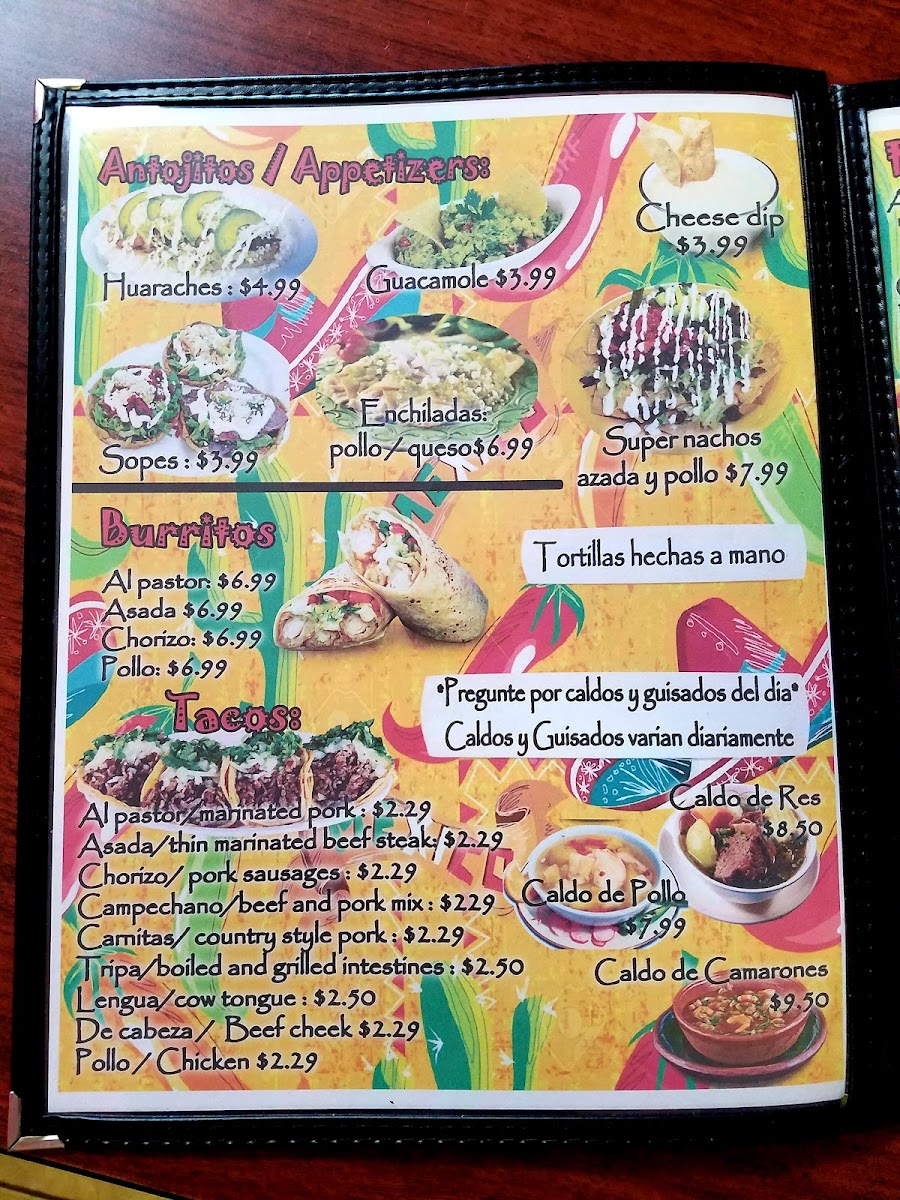 Antojitos / Appetizers:
Cheese dip
$3.99
Huaraches : $4.99
Guacamole $3.99
Enchiladas:
pollo/queso$6.99
Sopes : $3.99
Super nachos
azada y pollo $7.99
Burritos
Al pastor: $6.99
Asada $6.99
Chorizo: $6.99
Pollo: $6.99
Tortillas hechas a mano
*Pregunte por caldos y guisados del dia*
Caldos y Guisados varian diariamente
Tacos:
Al pastor/marinated pork : $2.29
Asada/thin marinated beef steak: $2.29
Chorizo/ pork sausages : $2.29
Campechano/beef and pork mix : $229
Carnitas/ country style pork : $2.29
Tripa/boiled and grilled intestines : $2.50
Lengua/cow tongue : $2.50
De cabeza / Beef cheek $2.29
Pollo / Chicken $2.29
Caldo de Res
$8.50
Caldo de Pollo
$7.99
Caldo de Camarones
$9.50